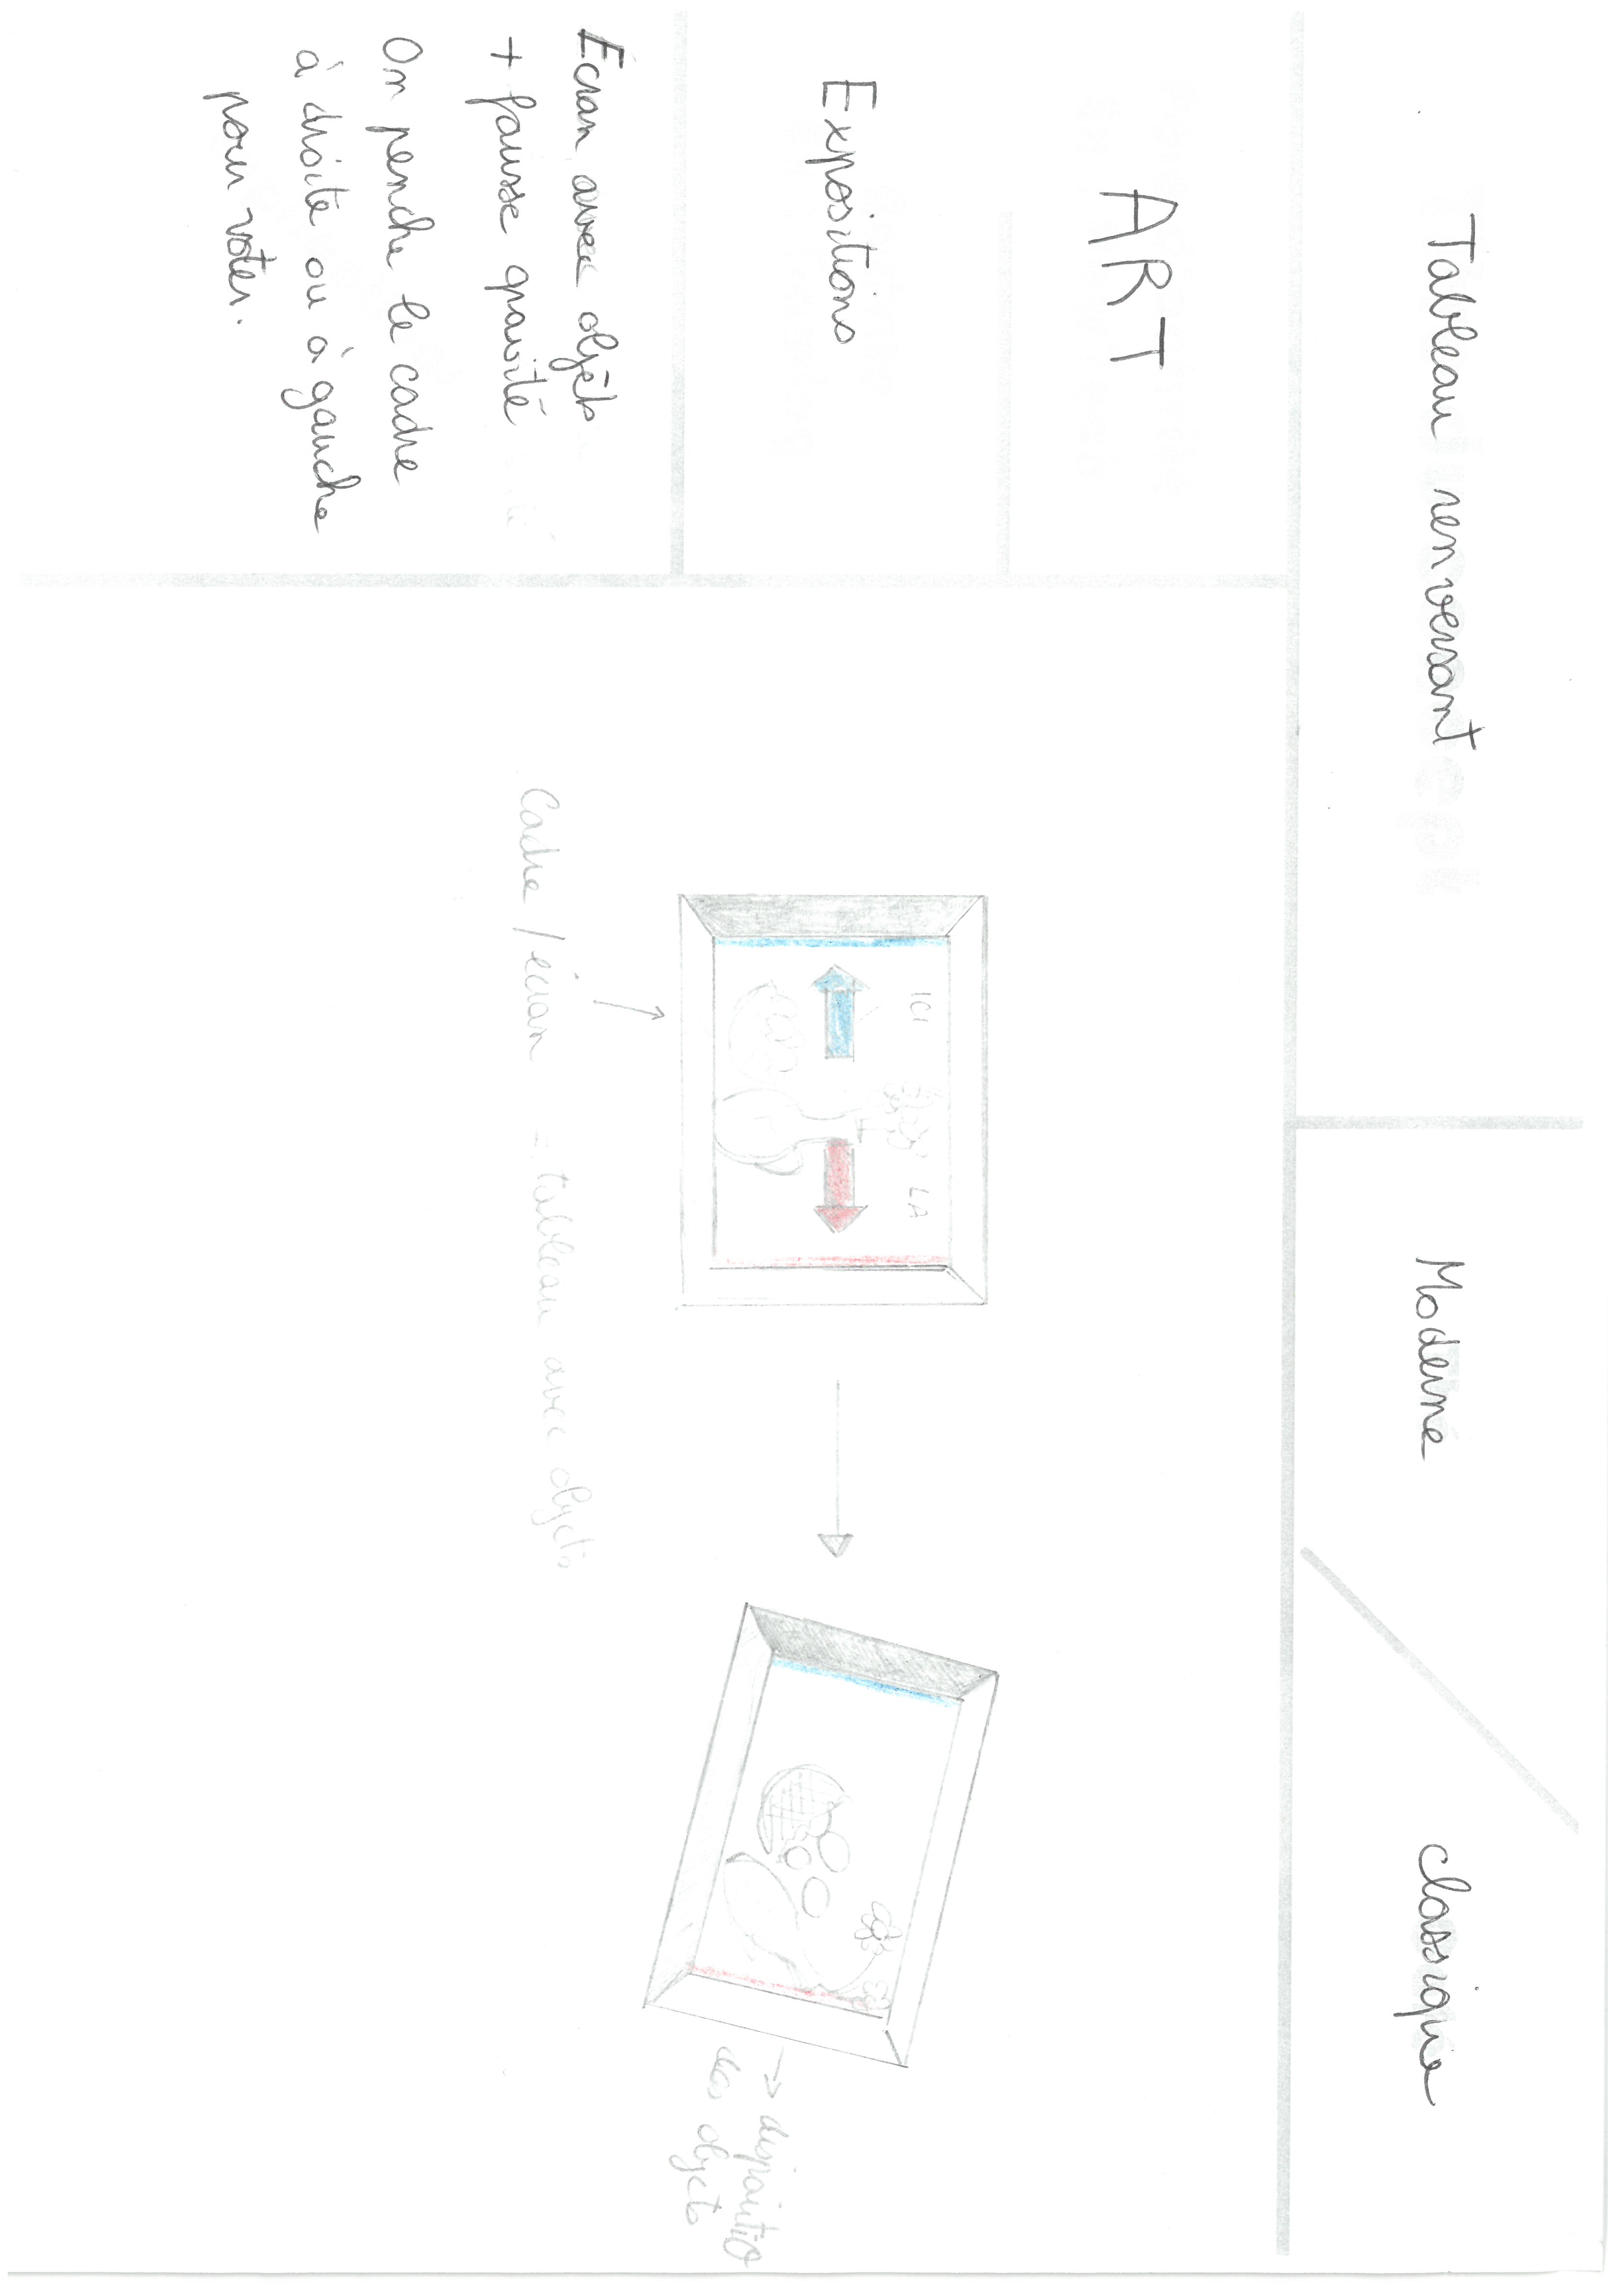 Tableau renversant
Moderne
classique
ART
Expositions
Écran avec objets
+ fausse gravité
On penche le cadre
à droite ou à gauche
pour voter.
ICI
LA
Cadre / écran = tableau avec objets
→ disparition
des objets